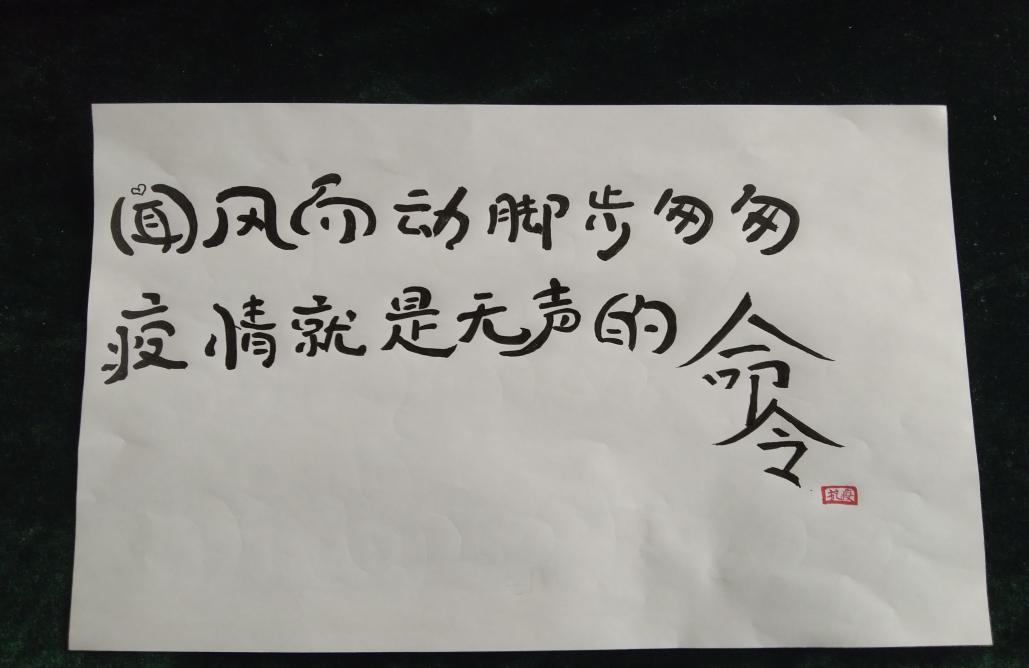 闻风而动脚步匆匆
疫情就是无声的命令
抗疫